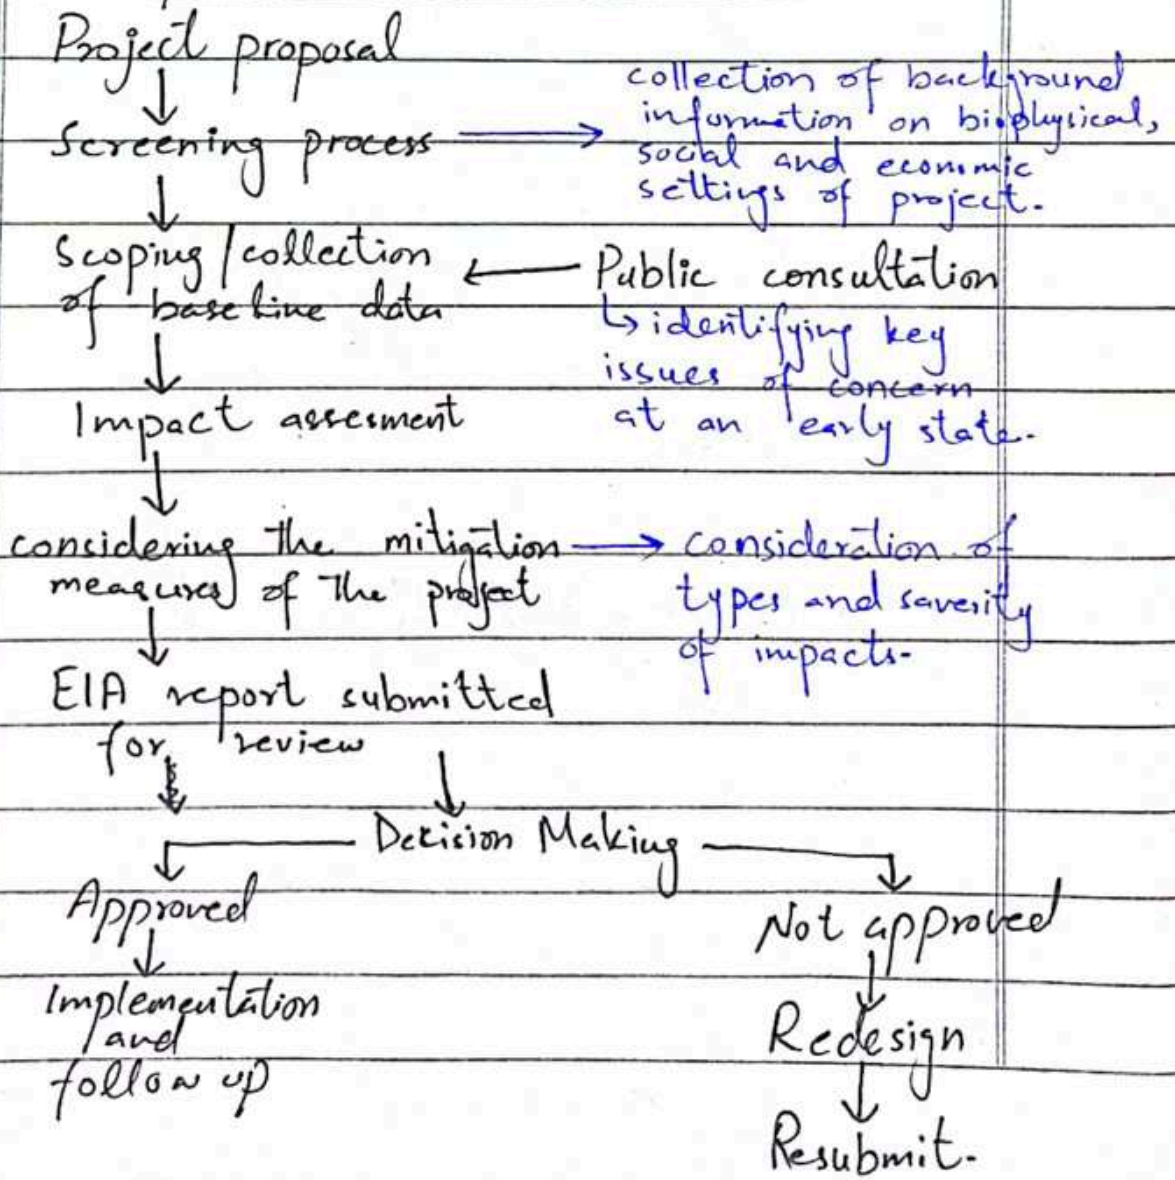 Project proposal
Screening process
collection of background
information on biophysical,
social and economic
settings of project.
Scoping/collection
of baseline data
Public consultation
identifying key
issues of concern
at an early state.
Impact assesment
considering the mitigation
measures of the project
consideration of
types and saverity
of impacts.
EIA report submitted
for review
Decision Making
Approved
Not approved
Implementation
and
follow up
Redesign
Resubmit.